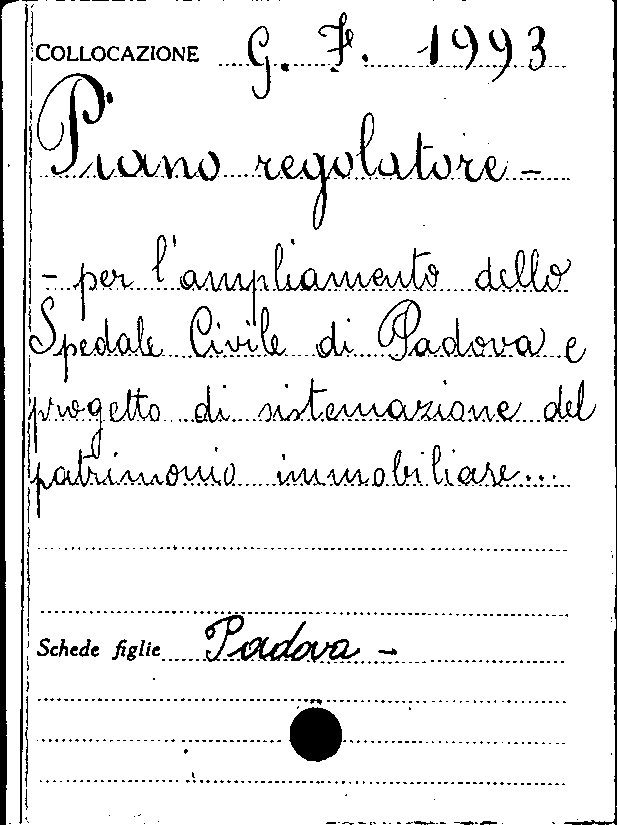 COLLOCAZIONE G. F. 1993
Piano regolatore -
- per l'ampliamento dello
Spedale Civile di Padova e
progetto di sistemazione del
patrimonio immobiliare...
Schede figlie Padova -